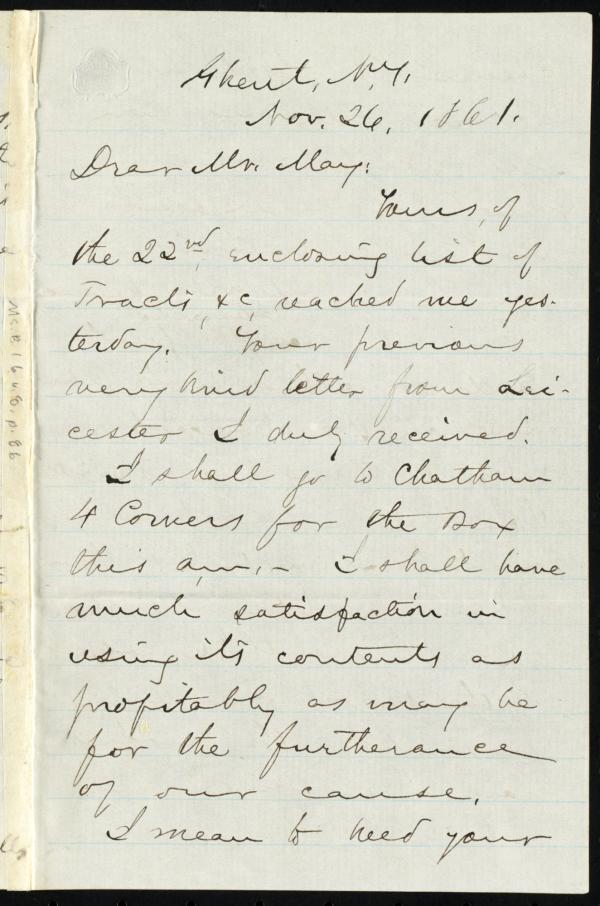 Ghent, N.Y.
Nov. 26, 1861.
Dear Mr. May:
Yours, of
the 22nd, enclosing list of
Tracts, &c, reached me yes-
terday. Your previous
very kind letter from Lei-
cester I duly received.
I shall go to Chatham
4 Corners for the Box
this a.m. - I shall have
much satisfaction in
using its contents as
profitably as may be
for the furtherance
of our cause.
I mean to heed your
Ms.B.1.6 v.8, p.86